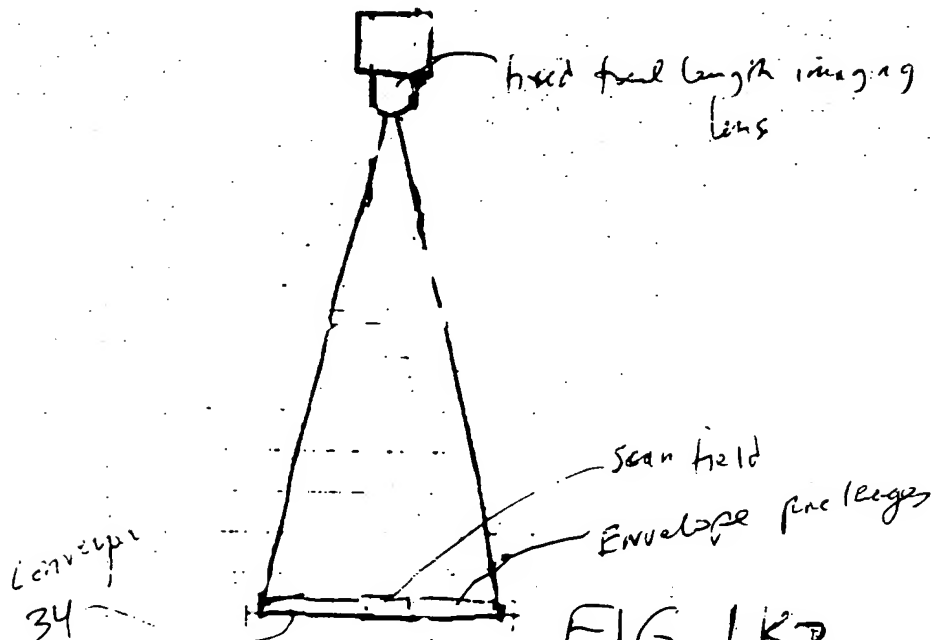 fixed focal length imaging
lens
scan field
Envelope packages
Conveyor
34
FIG. 1K2